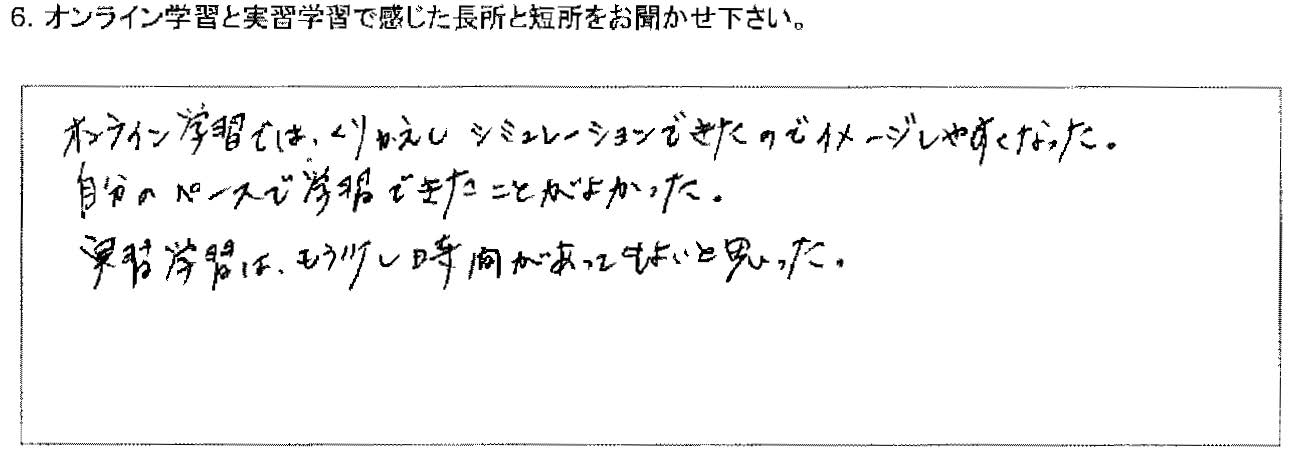 6. オンライン学習と実習学習で感じた長所と短所をお聞かせ下さい。
オンライン学習では、くりかえし シミュレーションできたのでイメージしやすくなった。
自分のペースで学習できたことがよかった。
実習学習は、もう少し時間があってもよいと思った。